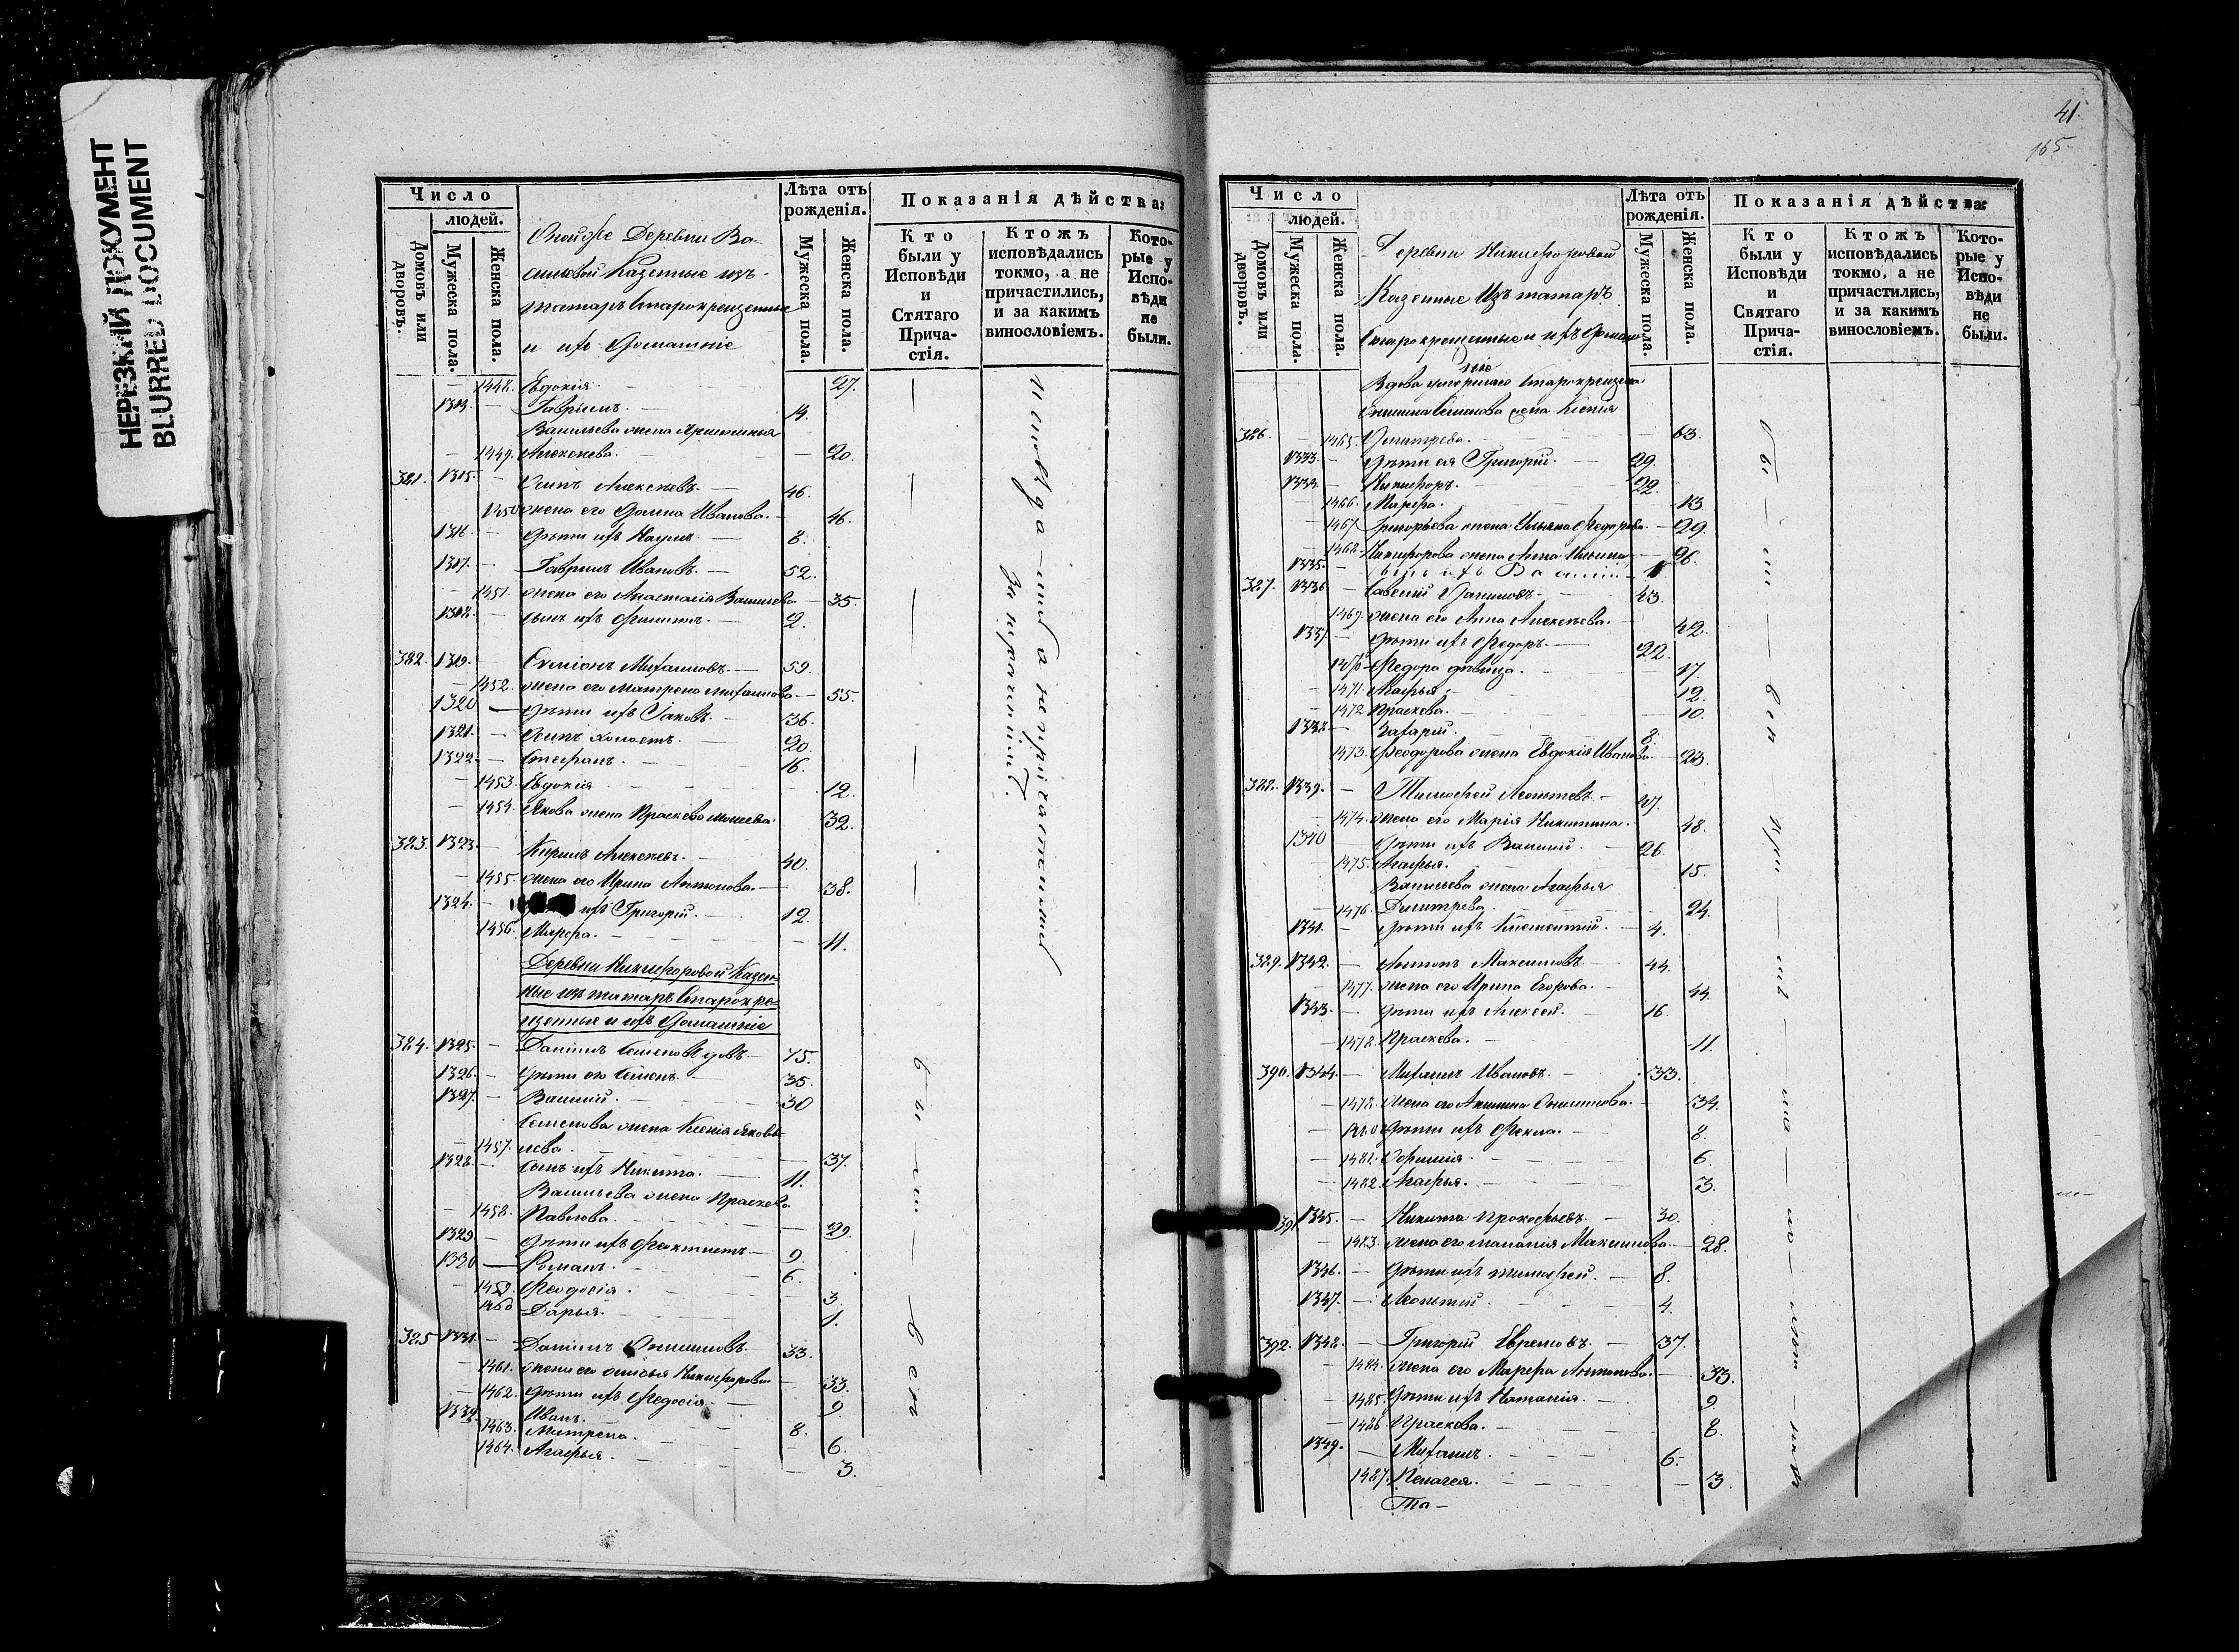 НЕРЕЗКИЙ ДОКУМЕНТ
BLURRED DOCUMENT
Число
людей.
Домовъ или дворовъ.
Мужеска пола.
Женска пола.
Деревни Ва-
Казенные изъ
татаръ Старокрещенные
и ихъ Домашніе
Лѣта отъ рожденія.
Мужеска пола.
Женска пола.
Показанія дѣйства:
Кто были у Исповѣди и Стятаго Прича-стія.
Ктожъ исповѣдались токмо, а не причастились, и за какимъ винословіемъ.
Кото-рые у Испо-вѣди не были.
1448. Евдокія. 27.
Гавріилъ. 14.
Васильева жена
1449. Алексѣева. 20.
1315. Осипъ Алексѣевъ. 46.
1450 жена его Домна Иванова. 46.
1316. дѣти ихъ Наумъ. 8.
1317. Гавріилъ Ивановъ. 52.
1451. жена его Анастасія Васильева 35.
1318. сынъ ихъ Филиппъ. 2.
382. 1319. Симіонъ Михаиловъ. 59.
1452. жена его Матрена Михаилова 55.
1320 дѣти ихъ Іаковъ. 36.
1321. Осипъ холостъ. 20.
1322. Стефанъ. 16.
1453. Евдокія 12.
1454. Якова жена Праскева Моисеева. 32.
383. 1323. Кирилъ Алексѣевъ. 40.
1455. жена его Ирина Антонова. 38.
1324. ихъ Григорій. 12.
1456. Марфа. 11.
Деревни Никифоровой Казен-
ные изъ татаръ Старокре-
щенные и ихъ Домашніе
384. 1325. Даніилъ Семеновъ вдовъ. 75.
1326. дѣти его Семенъ. 35.
1327. Василій. 30
Семенова жена Ксенія Яковъ-
1457. лева 37.
1328. сынъ ихъ Никита. 11.
Васильева жена Праскева
1458. Павлова. 29.
1329. дѣти ихъ Феоктистъ 9.
1330 Романъ. 6.
1459. Феодосія. 3
1460 Дарья. 1.
385 1331. Даніилъ Онисимовъ. 33.
1461. жена его Никифорова 33.
1462. дѣти ихъ Федосія. 9.
1332. Иванъ. 8.
1463. Матрена. 6.
1464. Агафья. 3.
41.
165
Число
людей.
Домовъ или дворовъ.
Мужеска пола.
Женска пола.
Деревни Никифоровой
Казенные Изъ татаръ
Старокрещенные и ихъ Домаш
ніе
Лѣта отъ рожденія.
Мужеска пола.
Женска пола.
Показанія дѣйства:
Кто были у Исповѣди и Святаго Прича-стія.
Ктожъ исповѣдались токмо, а не причастились, и за какимъ винословіемъ.
Кото-рые у Испо-вѣди не были.
Вдова умершаго Старокрещена
Онисима Семенова жена Ксенія
386. 1465. Димитрева. 63.
1333. дѣти ея Григорій. 29.
1334. Никифоръ. 22.
1466. Марфа. 13.
1467. Григорьева жена Ульяна Федорова. 29.
1468. Никифорова жена Анна Ильина 26.
1335. сынъ ихъ Василій 1.
387. 1336 Савелій 43.
1469. жена его Анна Алексѣева. 42.
1337. дѣти ихъ Федоръ. 22.
1470 Федора дѣвица. 17.
1471. Агафья. 12.
1472. Праскева. 10.
1338. Захарій. 8.
1473. Феодорова жена Евдокія Иванова. 23.
388. 1339. Тимофей Леонтьевъ. 47.
1474. жена его Марія Никитина. 48.
1340 дѣти ихъ Василій. 26.
1475. Агафья. 15.
Васильева жена Агафья
1476. Димитрева. 24.
1341. дѣти ихъ Климентій. 4.
389. 1342. Антонъ Максимовъ 44.
1477. жена его Ирина Егорова. 44.
1343. дѣти ихъ Алексѣй. 16.
1478. Праскева. 11.
390. 1344. Михаилъ Ивановъ. 33.
1478. жена его Акилина Онисимова. 34.
1480 дѣти ихъ Фекла. 8.
1481. 6.
1482. Агафья. 3.
391 1345. Никита Прокофьевъ 30.
1483. жена его Маланія Максимова. 28.
1346. дѣти ихъ Тимофей. 8.
1347. Леонтій. 4.
392. 1348. Григорій Евремовъ. 37.
1484. жена его Марфа Антонова. 33.
1485. дѣти ихъ Наталія. 9
1486 Праскева. 8.
1349. Михаилъ. 6.
1487. Пелагея. 3.
Та-